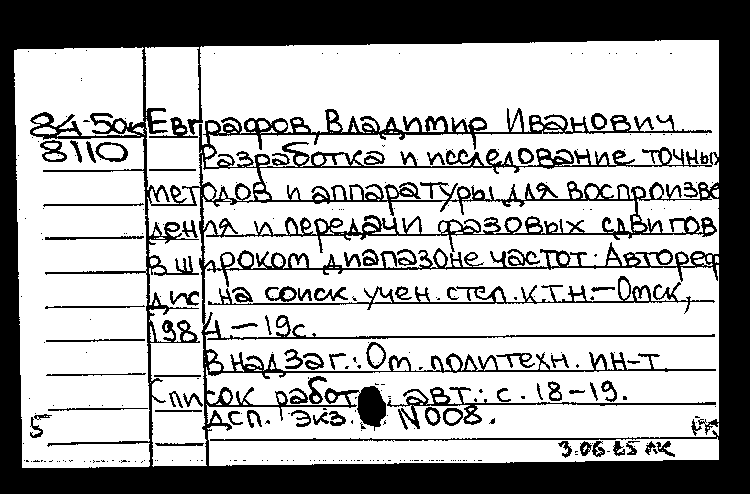 84-50к Евграфов, Владимир Иванович
8110 Разработка и исследование точных
методов и аппаратуры для воспроизве
дения и передачи фазовых сдвигов
в широком диапазоне частот: Автореф
дис. на соиск. учен. степ. к.т.н.—Омск,
1984.—19с.
В надзаг.: Ом. политехн. ин-т
Список работ авт.: с. 18-19.
ДСП. Экз. N008.
5
3.06.85 ЛК